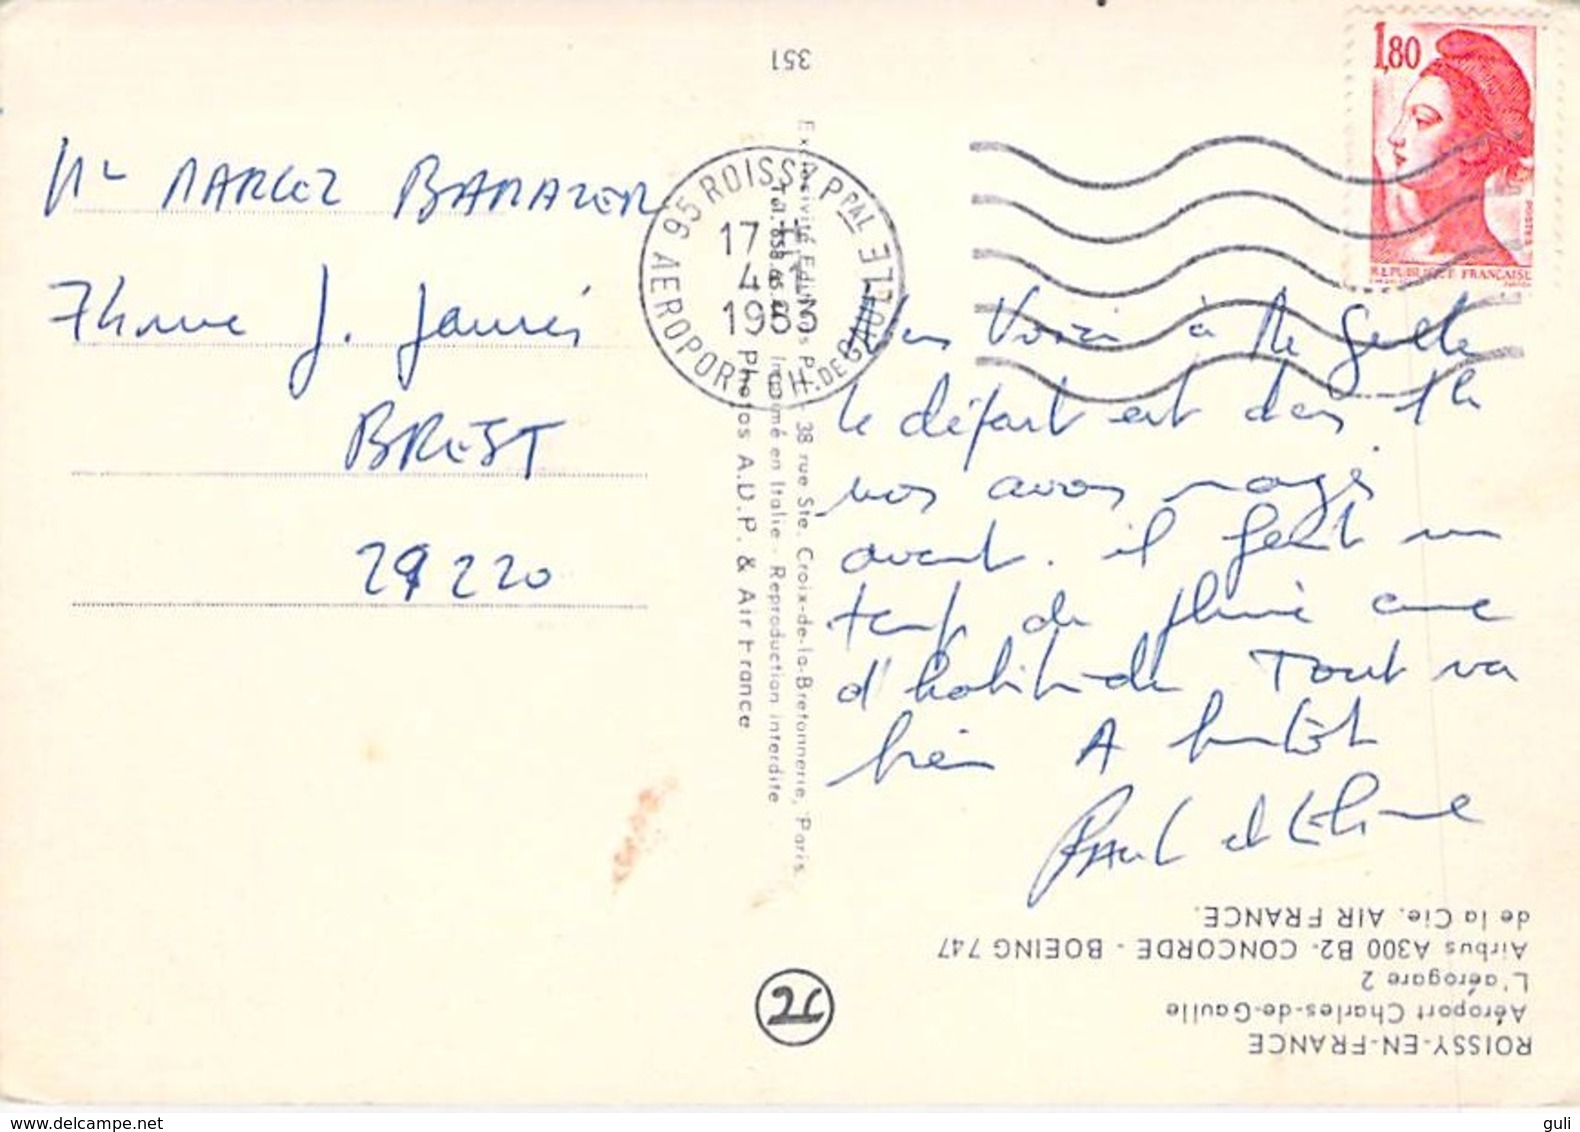 351
1,80
REPUBLIQUE FRANÇAISE
POSTES
Mr MARCEL BAMAZER
rue J. Jaurès
BREST
29220
95 ROISSY Ppal
AEROPORT CH. DE GAULLE
17 H
4
198
Exclusivité Editions P. I. - 38 rue Ste. Croix-de-la-Bretonnerie, Paris.
Imprimé en Italie - Reproduction interdite
Photos A.D.P. & Air France
Voici à
le départ est dans 1h
nos avons mangé
avant. il fait un
temps de pluie comme
d'habitude Tout va
bien A bientôt
Paul et
ROISSY-EN-FRANCE
Aéroport Charles-de-Gaulle
L'aérogare 2
Airbus A300 B2- CONCORDE - BOEING 747
de la Cie. AIR FRANCE.
delcampe.net
guli